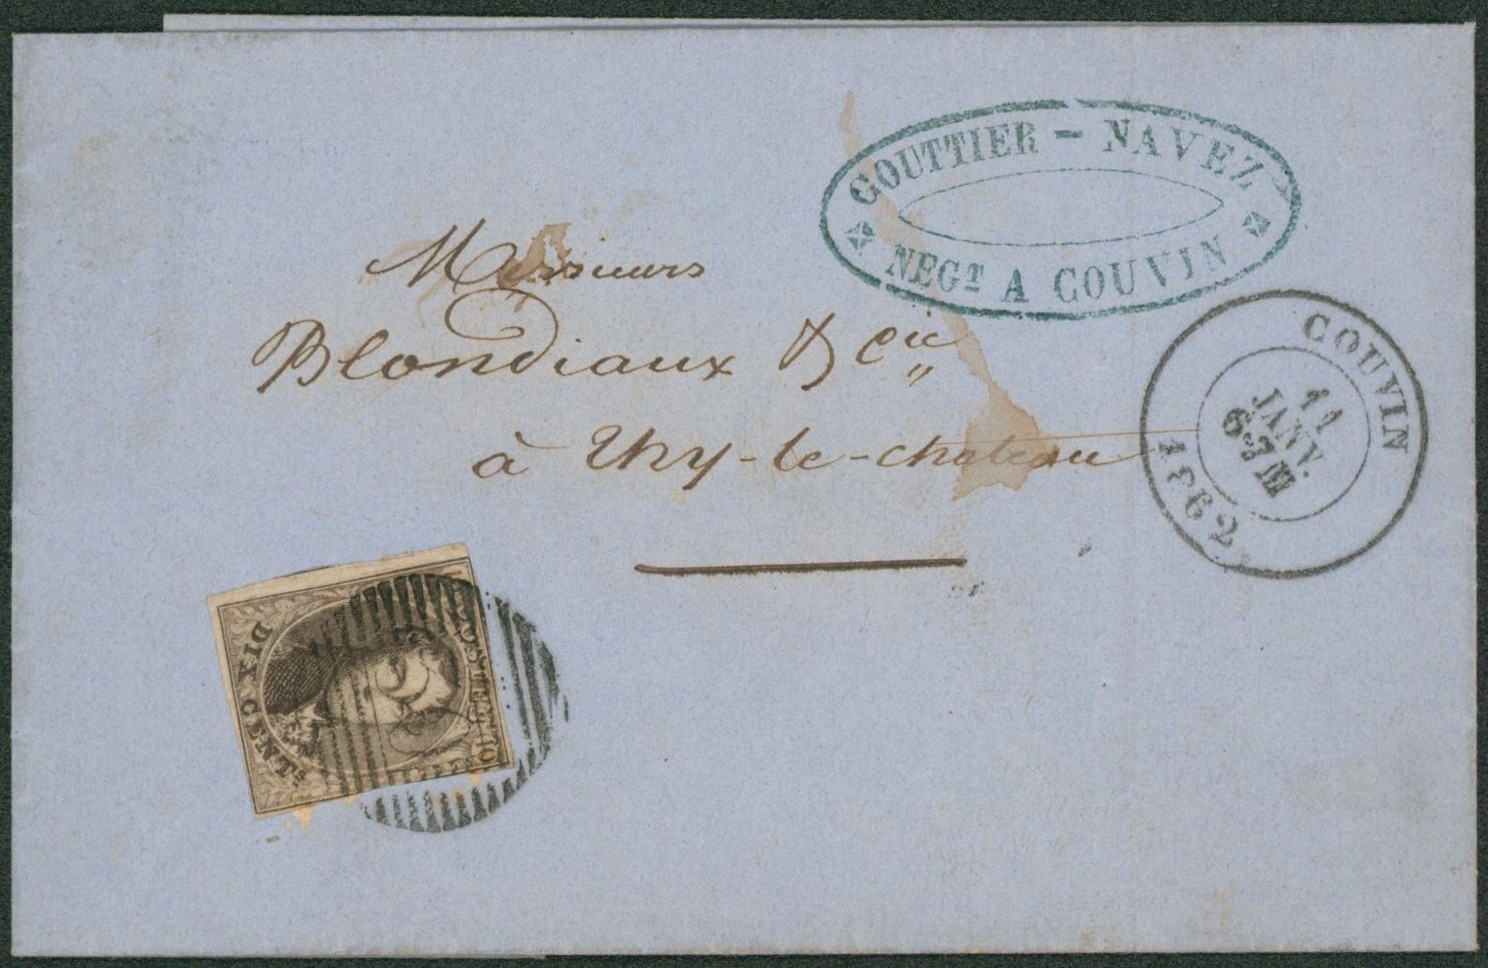 GOUTTIER - NAVEZ
NEGT A COUVIN
Messieurs
Blondiaux & Cie
à Thy-le-chateau
COUVIN
11
JANV.
6-7 M
1862
POSTES 10
DIX CENTS